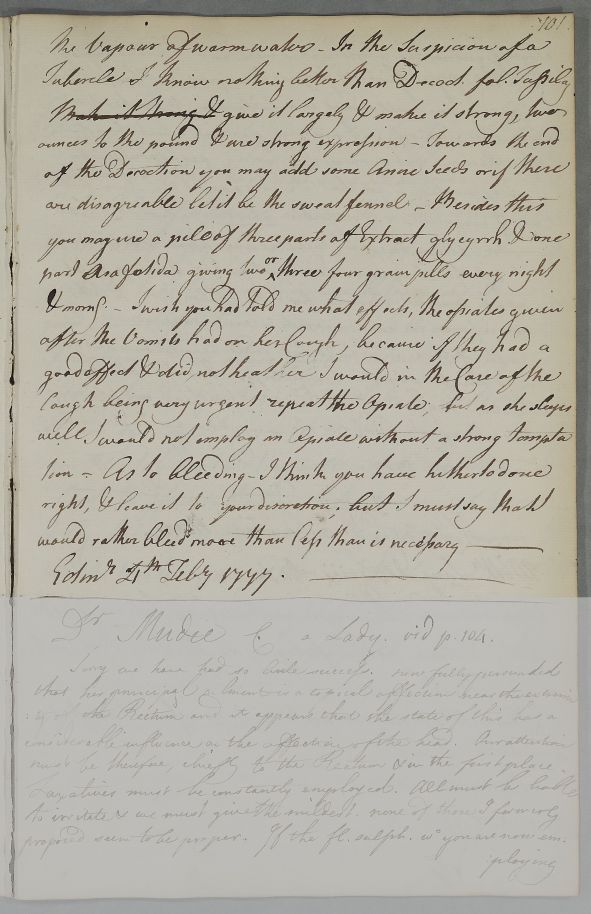 101.
the Vapour of warm water – In the Suspicion of a
Tubercle I know nothing better than Decoct. fol. Tussilag
Make it strong & give it largely & make it strong, two
ounces to the pound & use strong expression – Towards the end
of the Decoction you may add some Anise Seeds or if these
are disagreable let it be the sweat fennel – Besides this
you may use a pill of three parts of Extract glycyrrh. & one
part Asafotida giving two or three four grain pills every night
& morng. – I wish you had told me what effects, the opiates given
after the Vomits had on her Cough, because if they had a
good effect & did not heat her I would in the Case of the
Cough being very urgent repeat the Opiate, but as she sleeps
well I would not employ an Opiate without a strong tempta
tion – As to bleeding – I think you have hitherto done
right, & leave it to your discretion. but I must say that I
would rather bleed more than less than is necessary
Edinr. 4th Feby 1777.
Dr Mudie C a Lady. vid p. 104.
Sorry we have had so little success. now fully persuaded
that her principal ailment is a topical affection near the extremi
:ty of the Rectum and it appears that the state of this has a
considerable influence on the affection of the head. Our attention
must be therefore, chiefly to the Rectum & in the first place
Laxatives must be constantly employed. All must be liable
to irritate & we must give the mildest. none of those I formerly
proposed seem to be proper. If the fl. sulph. wc. you are now em:
:ploying